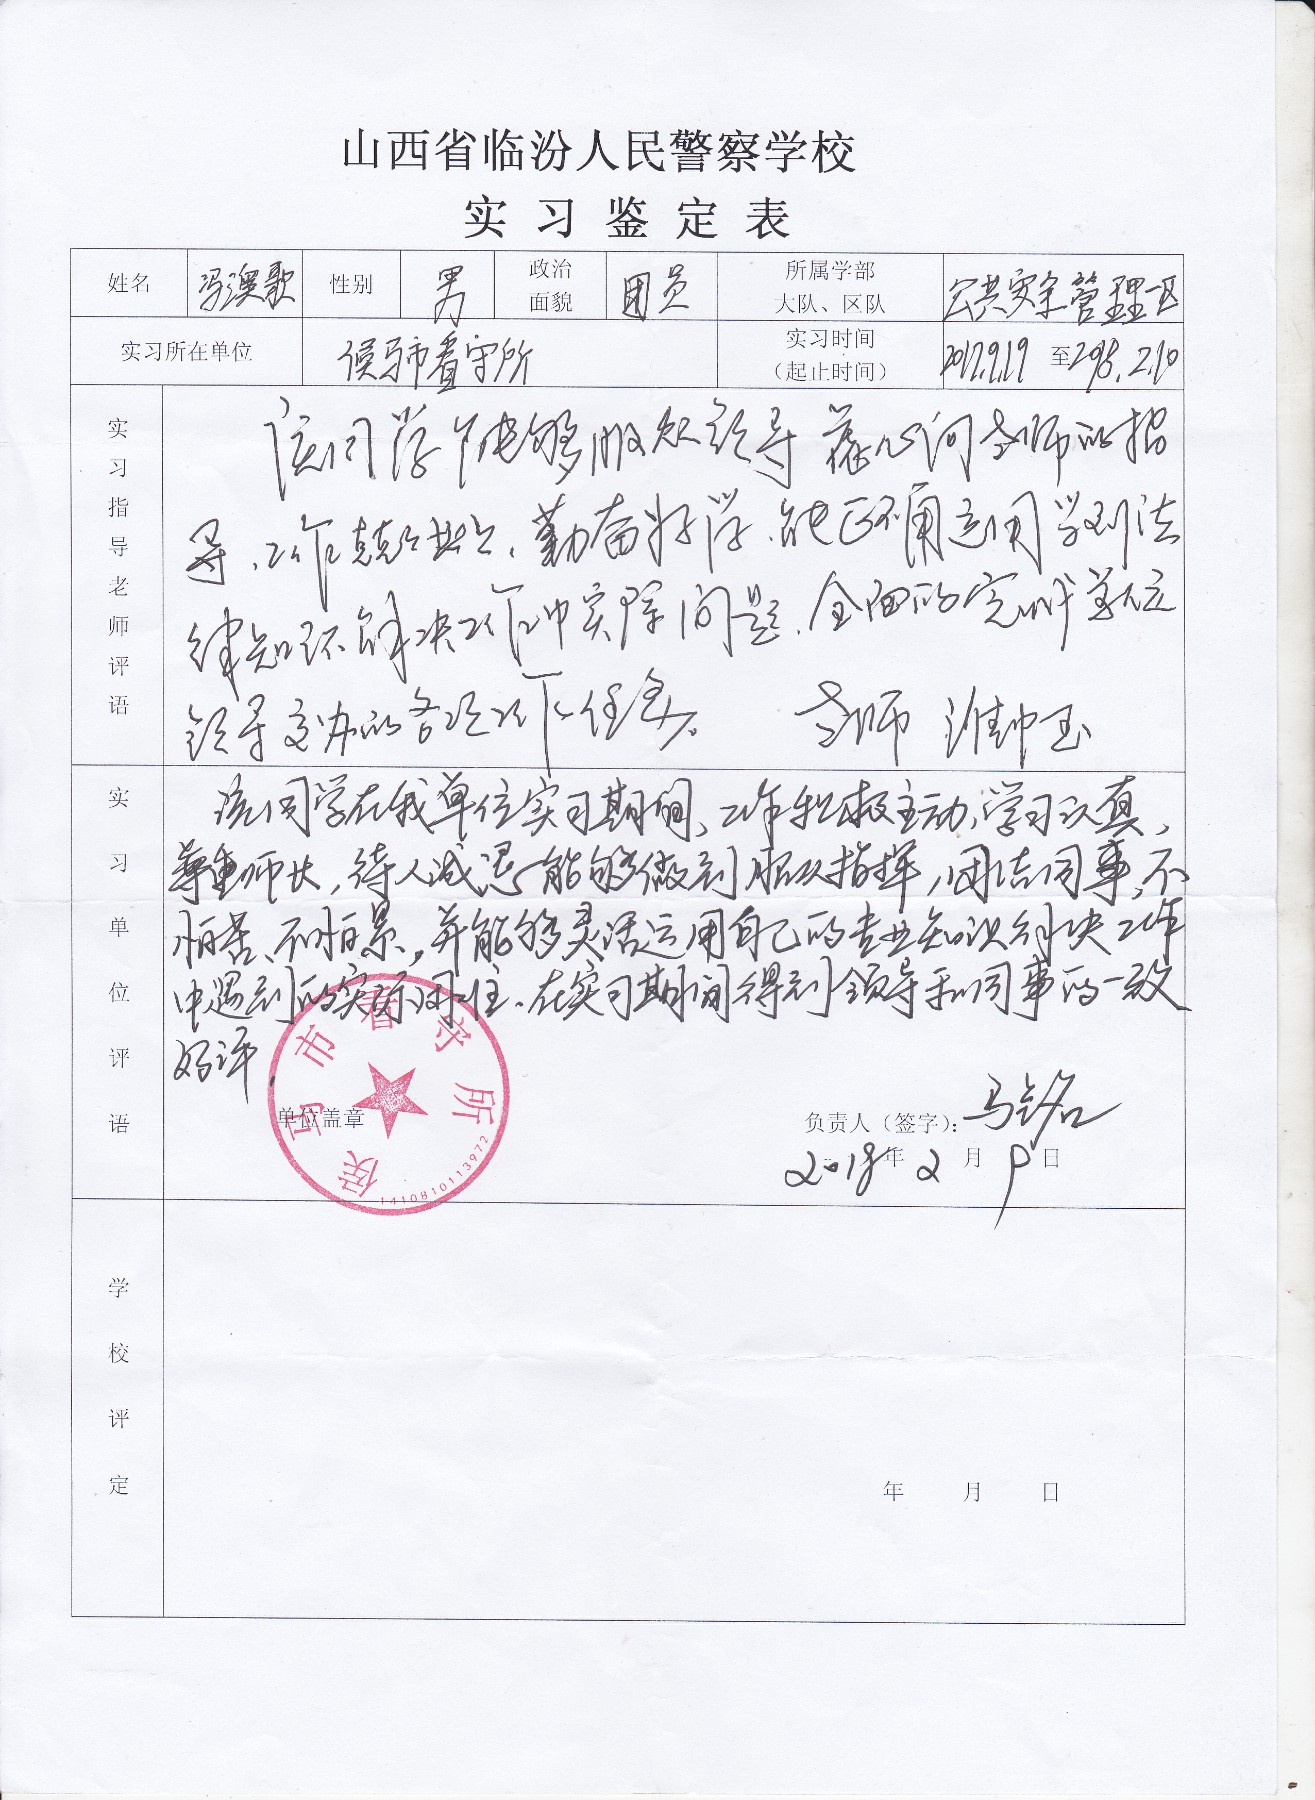 山西省临汾人民警察学校
实习鉴定表
姓名 冯澳歌 性别 男 政治面貌 团员 所属学部大队、区队 公共安全管理一区
实习所在单位 侯马市看守所 实习时间（起止时间） 2017.9.19 至 2018.2.10
实习指导老师评语
该同学能够服从领导 虚心向老师的指
导，工作兢兢业业，勤奋好学，能正确运用学到法
律知识解决工作中实际问题，全面的完成单位
领导交办的各项工作任务。 老师
实习单位评语
该同学在我单位实习期间，工作积极主动，学习认真，
尊重师长，待人诚恳，能够做到服从指挥，团结同事，不
怕苦、不怕累，并能够灵活运用自己的专业知识解决工作
中遇到的实际困难。在实习期间得到领导和同事的一致
好评。
单位盖章
侯马市看守所
1410810113972
负责人（签字）：马铭
2018年2月9日
学校评定
年 月 日